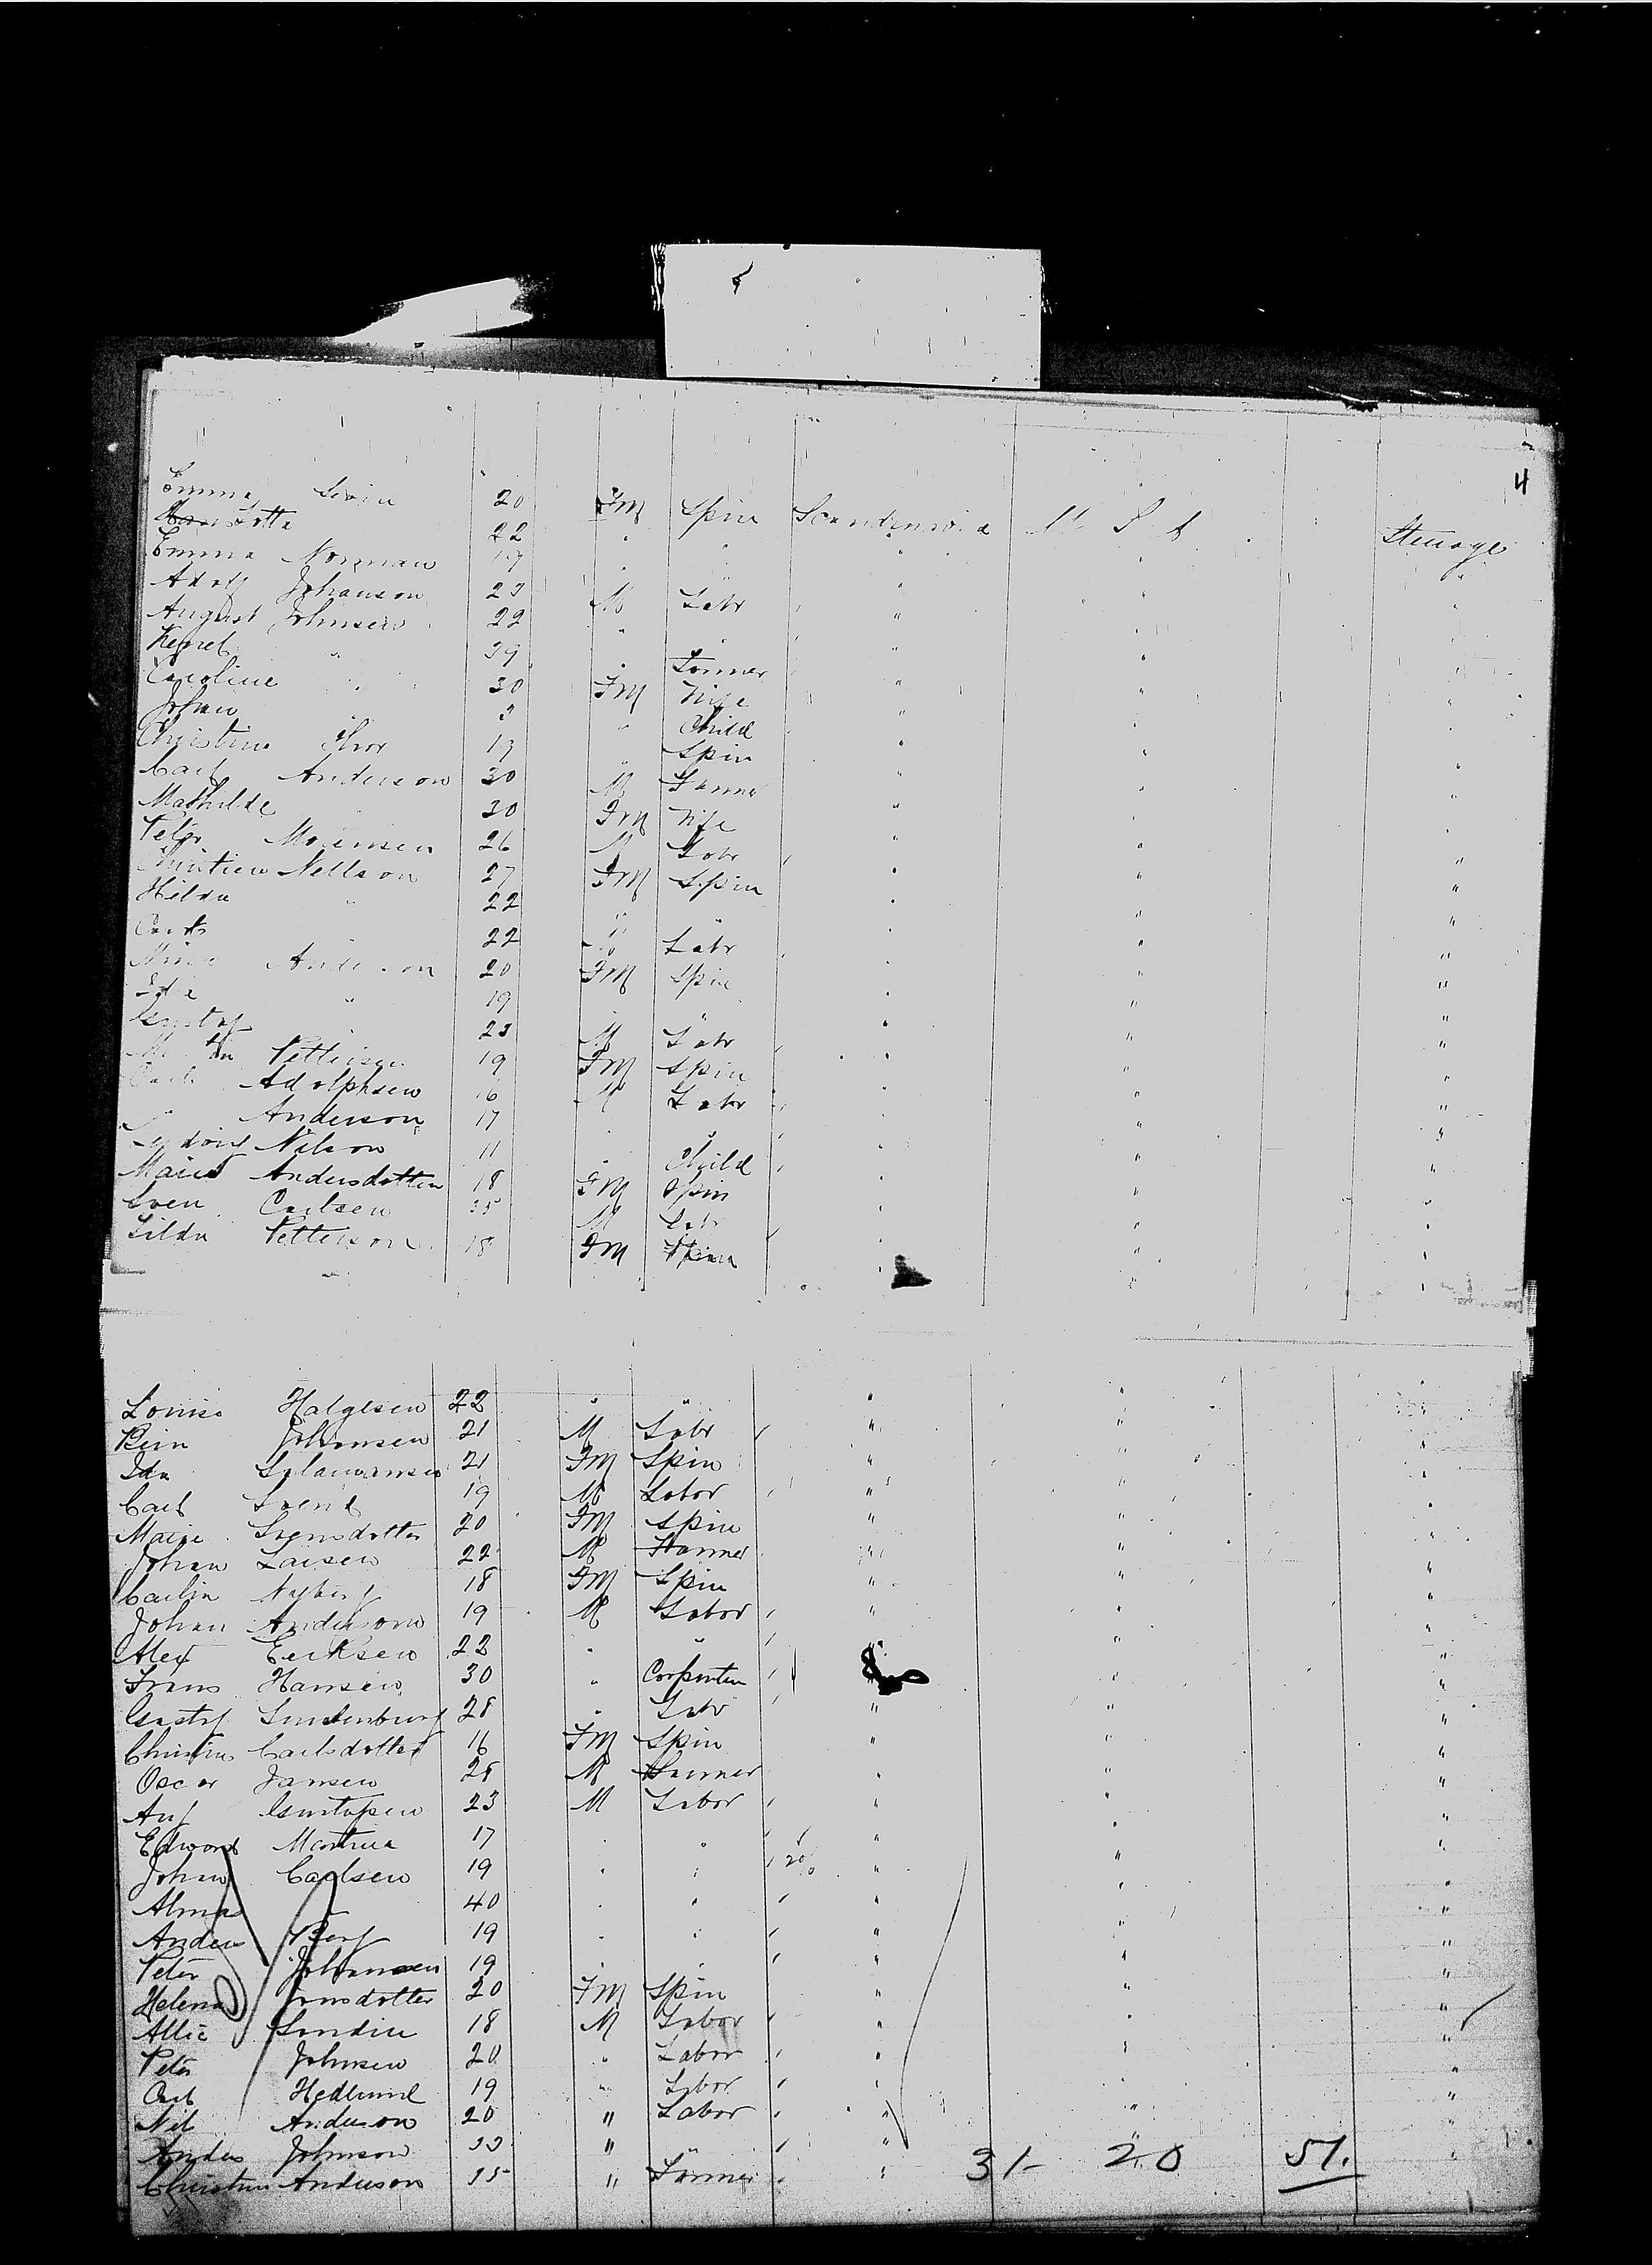 4
Emma 20 FM Spin Scandinavia U. S. A Steerage
Lotta 22 " " " " "
Emma Norman 19 " " " " "
Adolf Johanson 23 M Labr " " "
August Johnsen 22 " " " " "
" 39 " Farmer " " "
Caroline " 30 FM Wife " " "
Johan " 3 " Child " " "
Christine Thor 19 " Spin " " "
Carl Anderson 30 M Farmer " " "
Mathilde " 30 FM Wife " " "
Peter 26 M Labr " " "
Nellson 27 FM Spin " " "
Hilda " 22 " " " " "
22 M Labr " " "
Anderson 20 FM Spin " " "
Ida " 19 " " " " "
Gustaf " 23 M Labr " " "
Petterson 19 FM Spin " " "
Carl Adolphsen 16 M Labr " " "
Anderson 17 " " " " "
Ludvig Nilson 11 " Child " " "
Maria Andersdotter 18 FM Spin " " "
Sven Carlsen 35 M Labr " " "
Petterson 18 FM Spin " " "
Louise Halgesen 22 " " " " "
Johansen 21 M Labr " " "
Ida 21 FM Spin " " "
Carl Svend 19 M Labor " " "
Marie Svensdotter 20 FM Spin " " "
Johan Larsen 22 M Farmer " " "
Carlin Nyberg 18 FM Spin " " "
Johan Anderson 19 M Labor " " "
Alex Eriksen 22 " " " " "
Frans Hansen 30 " Carpenter " " "
Gustaf Lundenburg 28 " Labr " " "
Christine Carlsdotter 16 FM Spin " " "
Oscar Jansen 28 M Farmer " " "
Aug Gustafsen 23 M Labor " " "
Edward 17 " " " " "
Johan Carlsen 19 " " 20/0 " " "
Alma 40 " " " " "
Anders Berg 19 " " " " "
Peter Johansen 19 " " " " "
Helena Jonsdotter 20 FM Spin " " "
Allie Sandin 18 M Labor " " "
Peter Johnsen 20 " Labor " " "
Carl Hedlund 19 " Labor " " "
Nil Anderson 20 " Labor " " "
Anders Johnson 33 " " " " "
Christian Anderson 35 " Farmer " "
31 - 20 51.